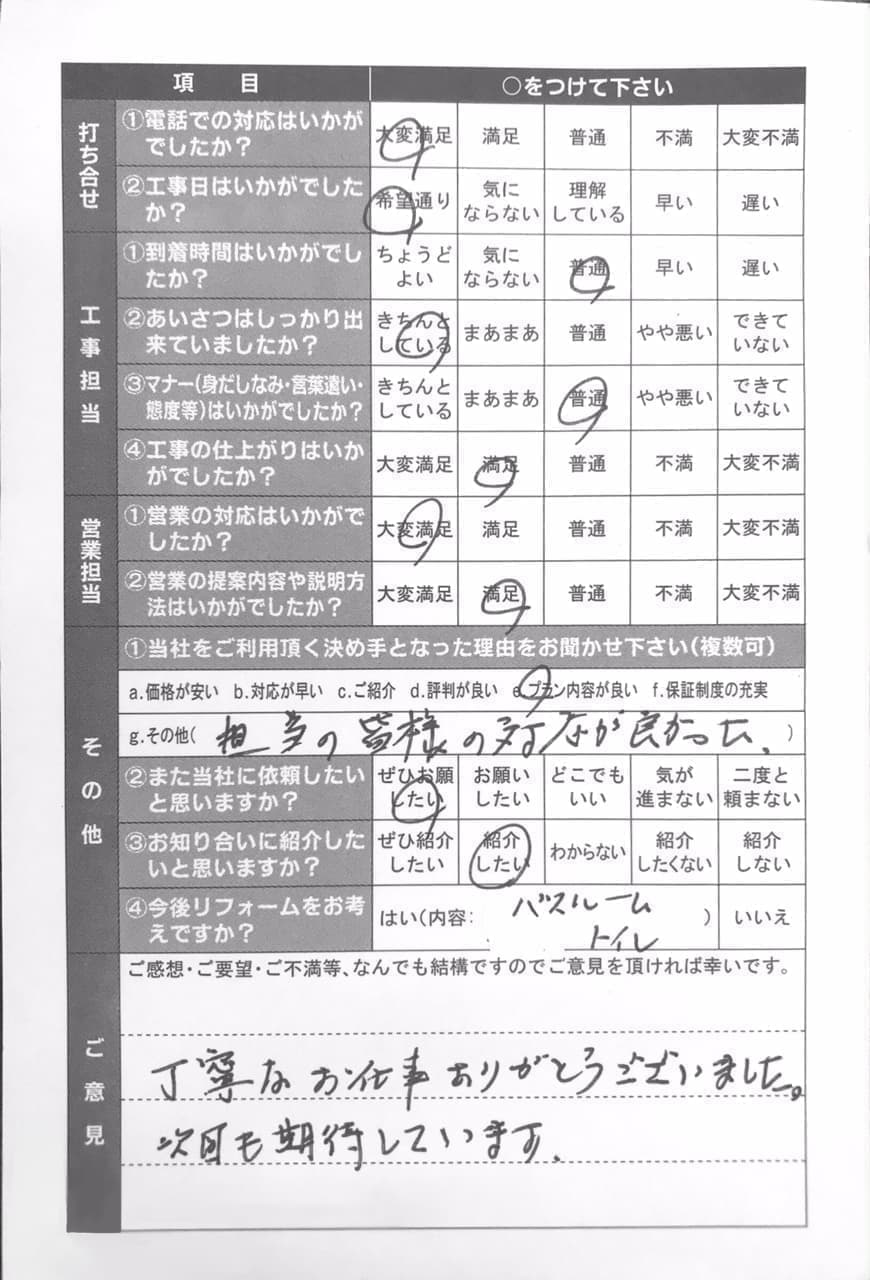 項　目　○をつけて下さい
打ち合せ
①電話での対応はいかが
でしたか?
大変満足　満足　普通　不満　大変不満
②工事日はいかがでした
か?
希望通り　気に
ならない　理解
している　早い　遅い
工事担当
①到着時間はいかがでし
たか?
ちょうど
よい　気に
ならない　普通　早い　遅い
②あいさつはしっかり出
来ていましたか?
きちんと
している　まあまあ　普通　やや悪い　できて
いない
③マナー(身だしなみ・言葉遣い・
態度等)はいかがでしたか?
きちんと
している　まあまあ　普通　やや悪い　できて
いない
④工事の仕上がりはいか
がでしたか?
大変満足　満足　普通　不満　大変不満
営業担当
①営業の対応はいかがで
したか?
大変満足　満足　普通　不満　大変不満
②営業の提案内容や説明方
法はいかがでしたか?
大変満足　満足　普通　不満　大変不満
その他
①当社をご利用頂く決め手となった理由をお聞かせ下さい(複数可)
a.価格が安い　b.対応が早い　c.ご紹介　d.評判が良い　e.プラン内容が良い　f.保証制度の充実
g.その他(担当の皆様の対応が良かった、)
②また当社に依頼したい
と思いますか?
ぜひお願
したい　お願い
したい　どこでも
いい　気が
進まない　二度と
頼まない
③お知り合いに紹介した
いと思いますか?
ぜひ紹介
したい　紹介
したい　わからない　紹介
したくない　紹介
しない
④今後リフォームをお考
えですか?
はい(内容:　バスルーム
トイレ　)　いいえ
ご意見
ご感想・ご要望・ご不満等、なんでも結構ですのでご意見を頂ければ幸いです。
丁寧なお仕事ありがとうございました。
次回も期待しています。